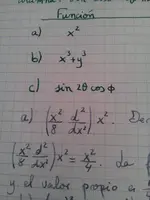 Función
a) x²
b) x³+y³
c) sin 2θ cos ϕ
a) (x²/8 d²/dx²) x². De
(x²/8 d²/dx²) x² = x²/4. La
y el valor propio es